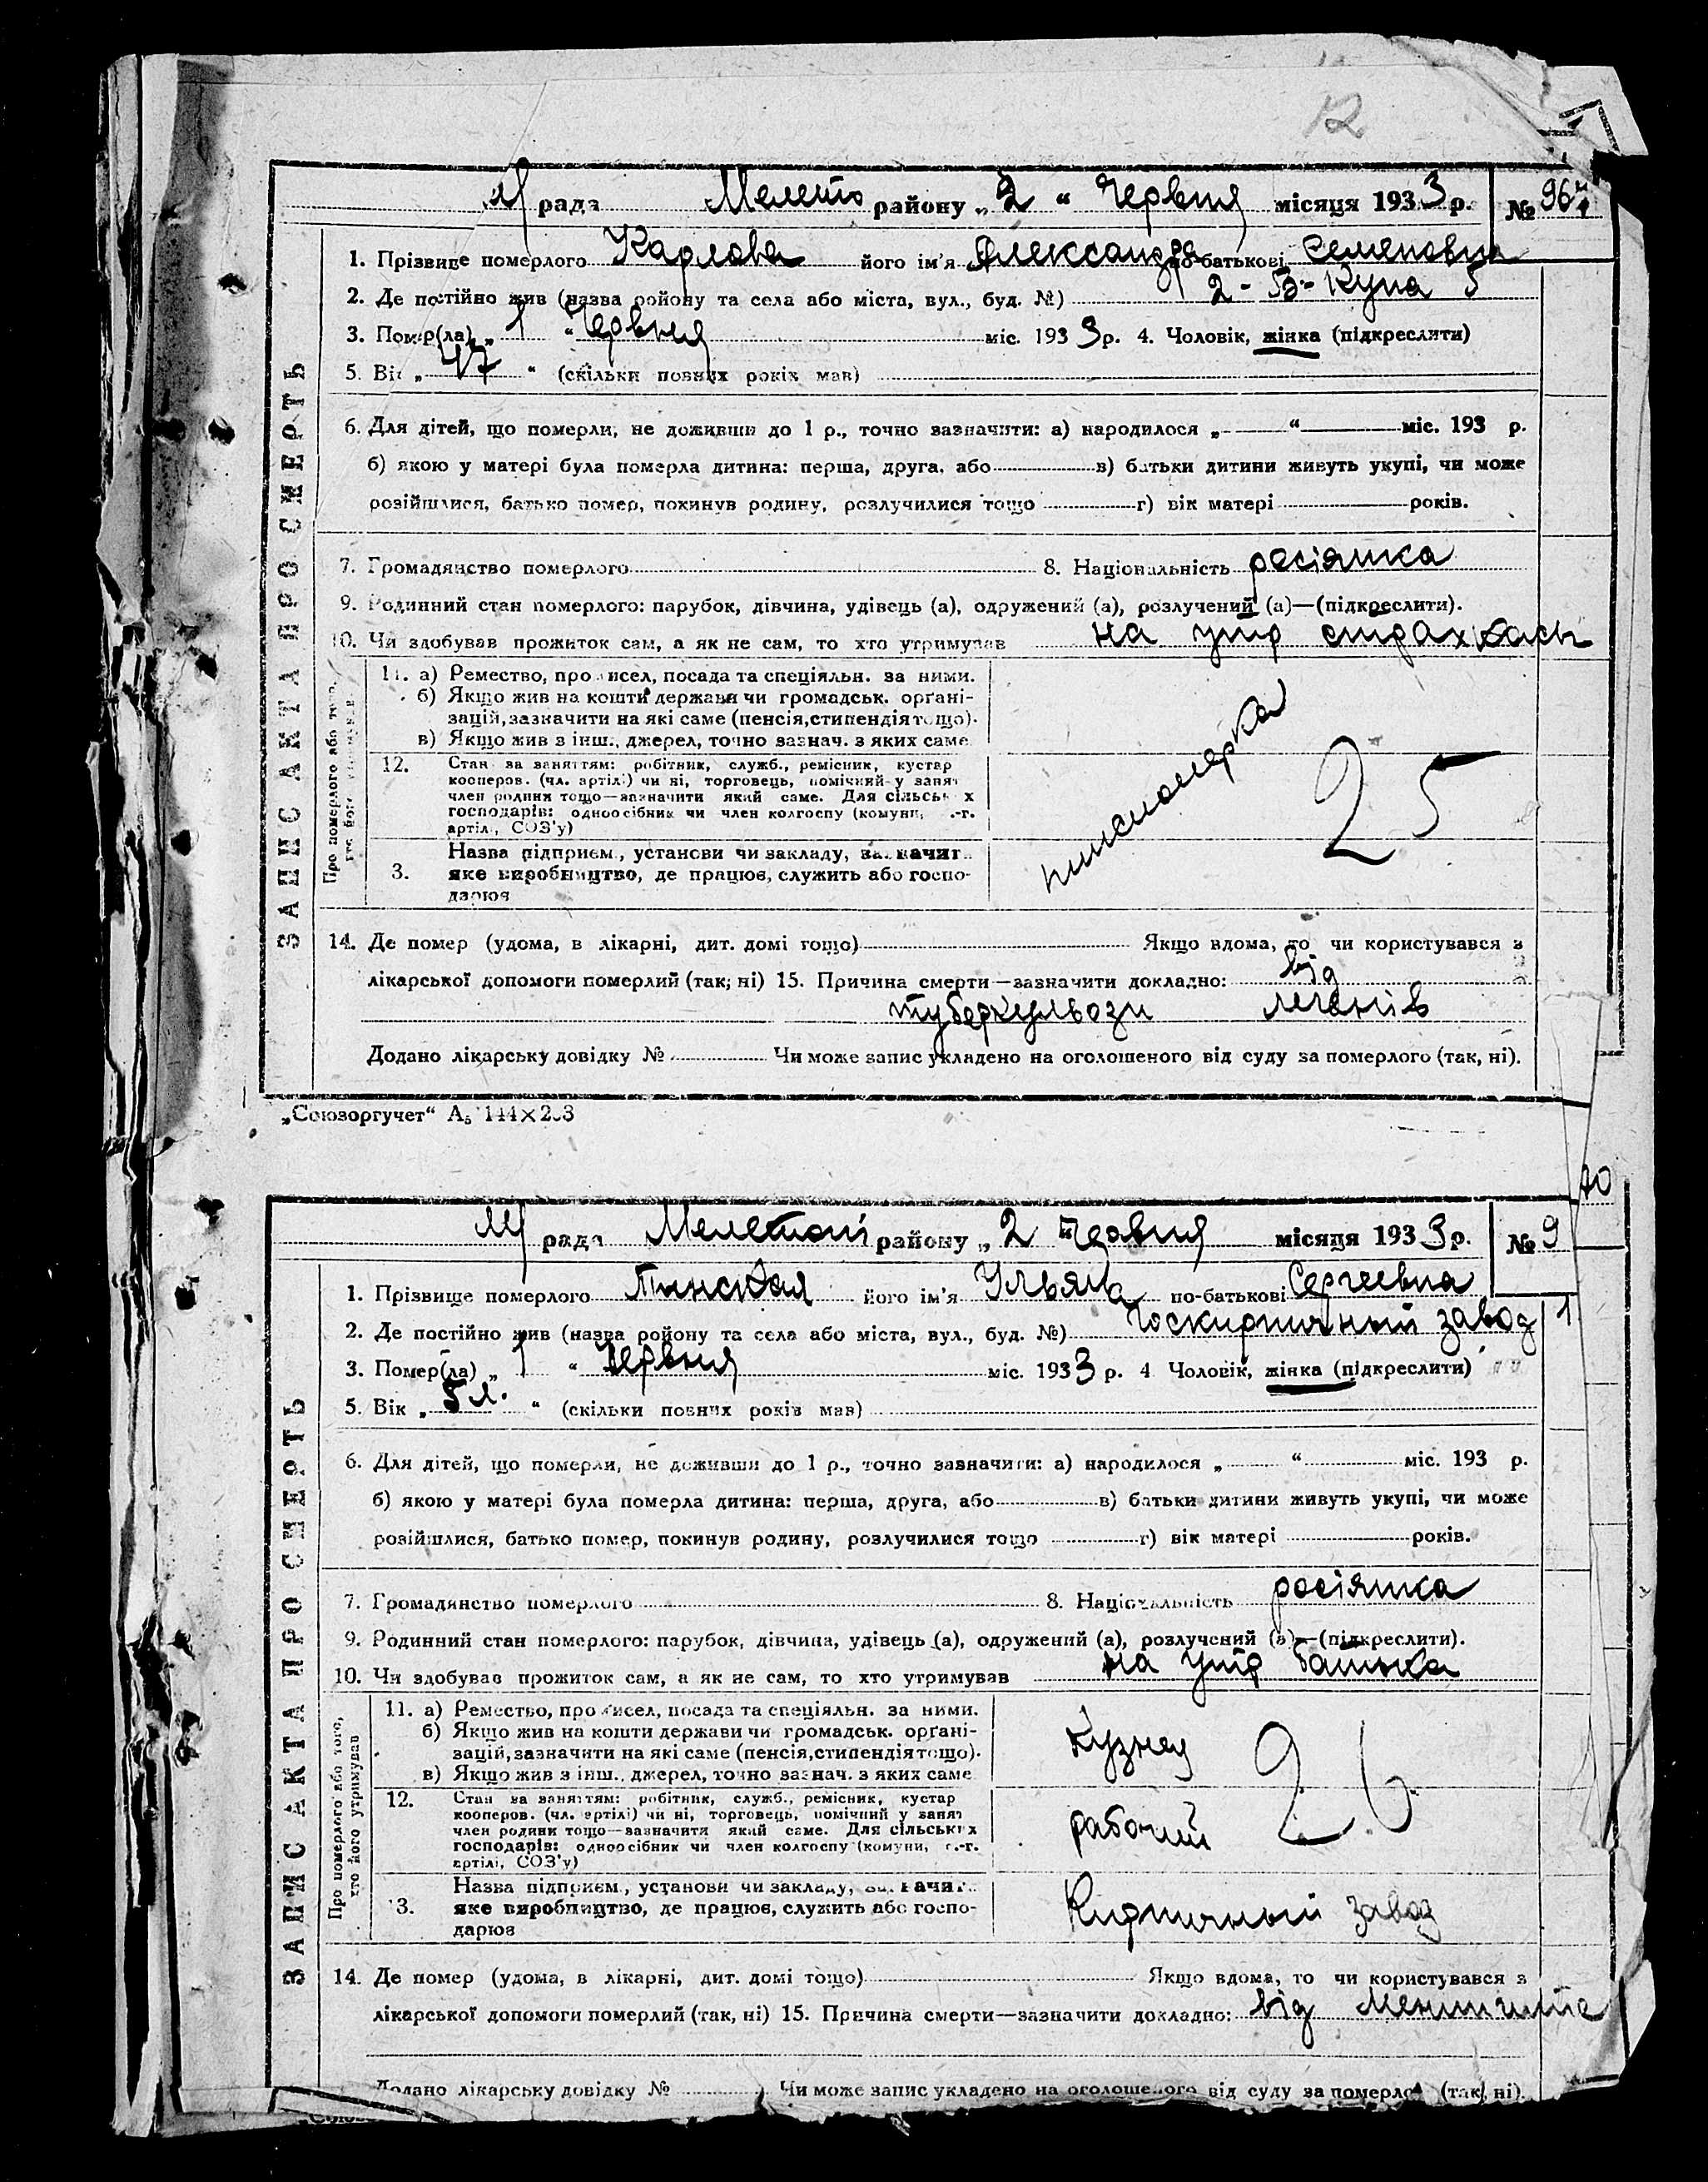 12
М рада Мелето району „ 2 “ Червня місяця 193 3 р. № 964
1. Прізвище померлого Карлова його ім'я Александра по-батькові Семеновн
2. Де постійно жив (назва району та села або міста, вул., буд. №) 2 - Б - Купа 5
3. Помер(ла) „ 1 “ Червня міс. 193 3 р. 4. Чоловік, жінка (підкреслити)
5. Вік „ 47 “ (скільки повних років мав)
6. Для дітей, що померли, не доживши до 1 р., точно зазначити: а) народилося „ “ міс. 193 р.
б) якою у матері була померла дитина: перша, друга, або в) батьки дитини живуть укупі, чи може
розійшлися, батько помер, покинув родину, розлучилися тощо г) вік матері років.
7. Громадянство померлого 8. Національність росіянка
9. Родинний стан померлого: парубок, дівчина, удівець (а), одружений (а), розлучений (а)—(підкреслити).
10. Чи здобував прожиток сам, а як не сам, то хто утримував на утр страхкасы
ЗАПИС АКТА ПРО СМЕРТЬ
11. а) Ремество, промисел, посада та спеціяльн. за ними.
б) Якщо жив на кошти держави чи громадськ. органі-
зацій, зазначити на які саме (пенсія, стипендія тощо).
в) Якщо жив з інш., джерел, точно зазнач. з яких саме
12. Стан за заняттям: робітник, служб., ремісник, кустар
кооперов. (чл. артілі) чи ні, торговець, помічний у занят
член родини тощо—зазначити який саме. Для сільських
господарів: одноосібник чи член колгоспу (комуни, с.-г.
артілі, СОЗ'у)
пинсионерка
25
Назва підприєм., установи чи закладу, зазначит
3. яке виробництво, де працює, служить або госпо-
дарює
14. Де помер (удома, в лікарні, дит. домі тощо) Якщо вдома, то чи користувався з
лікарської допомоги померлий (так; ні) 15. Причина смерти—зазначити докладно: від
туберкульози легенів
Додано лікарську довідку № Чи може запис укладено на оголошеного від суду за померлого (так, ні).
„Союзоргучет“ А₅ 144×203
М рада Мелетопі району „ 2 “ Червня місяця 193 3 р. № 9
1. Прізвище померлого Пинская його ім'я Ульяна по-батькові Сергеевна
2. Де постійно жив (назва району та села або міста, вул., буд. №) Госкирпичный завод 1
3. Помер(ла) „ 1 “ Червня міс. 193 3 р. 4 Чоловік, жінка (підкреслити)
5. Вік „ 5 л. “ (скільки повних років мав)
6. Для дітей, що померли, не доживши до 1 р., точно зазначити: а) народилося „ “ міс. 193 р.
б) якою у матері була померла дитина: перша, друга, або в) батьки дитини живуть укупі, чи може
розійшлися, батько помер, покинув родину, розлучилися тощо г) вік матері років.
7. Громадянство померлого 8. Національність росіянка
9. Родинний стан померлого: парубок, дівчина, удівець (а), одружений (а), розлучений (а)—(підкреслити).
10. Чи здобував прожиток сам, а як не сам, то хто утримував на утр батька
ЗАПИС АКТА ПРО СМЕРТЬ
Про померлого або того,
хто його утримував
11. а) Ремество, промисел, посада та спеціяльн. за ними.
б) Якщо жив на кошти держави чи громадськ. органі-
зацій, зазначити на які саме (пенсія, стипендія тощо).
в) Якщо жив з інш., джерел, точно зазнач. з яких саме
Кузнец
26
12. Стан за заняттям: робітник, служб., ремісник, кустар
кооперов. (чл. артілі) чи ні, торговець, помічний у занят
член родини тощо—зазначити який саме. Для сільських
господарів: одноосібник чи член колгоспу (комуни, с.-г.
артілі, СОЗ'у)
рабочий
Назва підприєм., установи чи закладу, зазначит
3. яке виробництво, де працює, служить або госпо-
дарює
Кирпичный завод
14. Де помер (удома, в лікарні, дит. домі тощо) Якщо вдома, то чи користувався з
лікарської допомоги померлий (так, ні) 15. Причина смерти—зазначити докладно: від Менингите
Додано лікарську довідку № Чи може запис укладено на оголошеного від суду за померлого (так, ні).